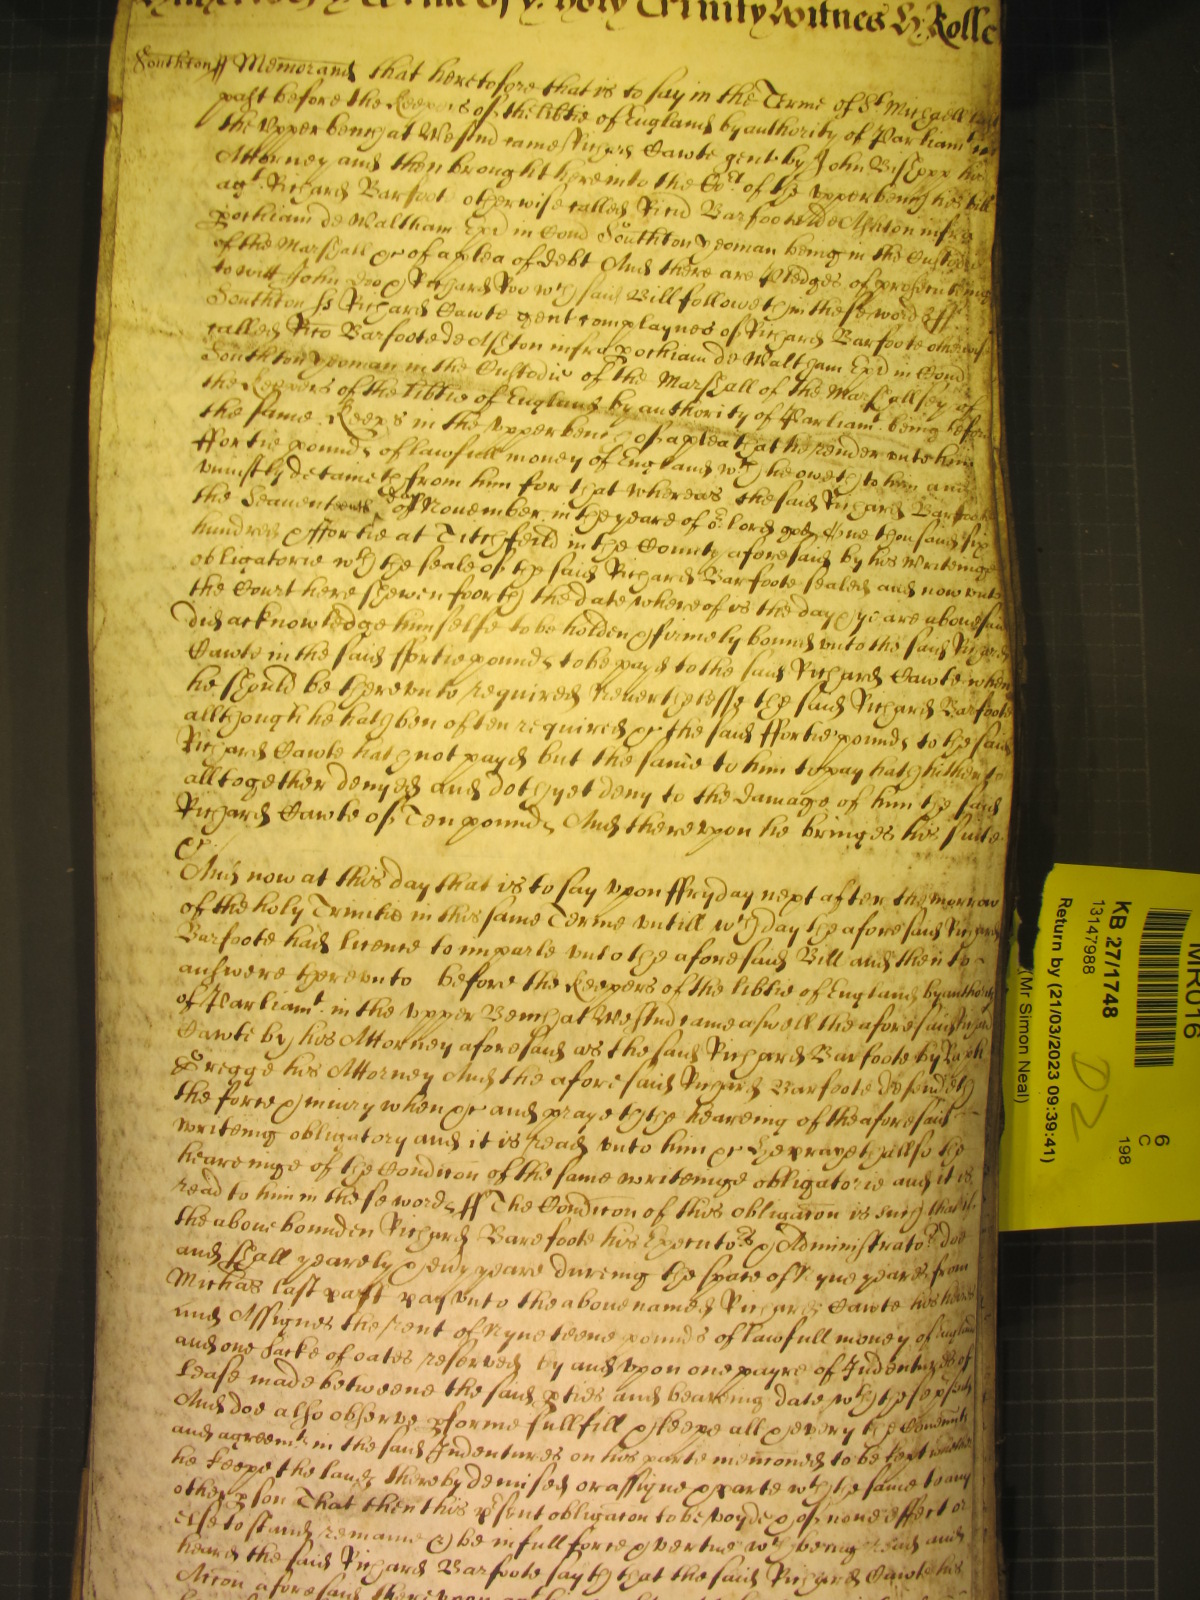 Terme of ye holy Trinity Witnes H. Rolle
Southton ss Memorand that heretofore that is to say in the Terme of St Michaell last
past before the Keepers of the libtie of England by authority of Parliamt in
the Upper bench at Westmr came Richard Cawte gent by John Bishopp his
Attorney and then brought here into the Cort of the upper bench his bill
agt Richard Barfoote otherwise called Ricd Barfoote de Ashton infra
pochiam de Waltham Epi in Com Southton yeoman being in the Custodie
of the Marshall &c of a plea of debt And there are Pledges of prosecuteing
to witt John Doo & Richard Roo wch said Bill followeth in these words ss
Southton ss Richard Cawte gent complaynes of Richard Barfoote otherwise
called Rico Barfoote de Ashton infra pochiam de Waltham Epi in Com
Southton yeoman in the Custodie of the Marshall of the Marshallsey of
the Keepers of the libtie of England by authority of Parliamt being before
the same Keeps in the upper bench of a plea that he render unto him
ffortie pounds of lawfull money of England wch he oweth to him and
uniustly detaineth from him for that whereas the said Richard Barfoote
the Seaventeenth day of November in the yeare of or lord god One thousand six
hundred & ffortie at Titchfeild in the County aforesaid by his Writeinge
obligatorie wth the seale of the said Richard Barfoote sealed and now unto
the Court here shewen foorth the date whereof is the day & yeare abovesaid
did acknowledge himselfe to be holden & firmely bound unto the said Richard
Cawte in the said ffortie pounds to be payd to the said Richard Cawte when
he should be thereunto required Neverthelesse the said Richard Barfoote
although he hath ben often required &c the said ffortie pounds to the said
Richard Cawte hath not payd but the same to him to pay hath hitherto
alltogether denyed and doth yet deny to the damage of him the said
Richard Cawte of Ten pounds And thereupon he bringes his suite
&c
And now at this day that is to say upon ffryday next after the morrow
of the holy Trinitie in this same Terme untill wch day the aforesaid Richard
Barfoote had licence to imparle unto the aforesaid Bill and then to
answere thereunto before the Keepers of the libtie of England by authority
of Parliamt in the upper Bench at Westmr came aswell the aforesaid Richard
Cawte by his Attorney aforesaid as the said Richard Barfoote by
Gregge his Attorney And the aforesaid Richard Barfoote defendeth
the force & iniury when &c and prayeth the heareing of the aforesaid
writeing obligatory and it is read unto him &c he prayeth allso the
heareinge of the Condicon of the same writeinge obligatorie and it is
read to him in these words ss The Condicon of this obligacon is such that if
the above bounden Richard Barefoote his Executors & Administrators doe
and shall yearely & every yeare dureing the space of Nyne yeares from
Michas last past pay unto the above named Richard Cawte his heires
and Assignes the rent of Nyneteene pounds of lawfull money of England
and one Sacke of oates reserved by and upon one payre of Indentures of
Lease made betweene the said pties and beareing date wth these psents
And doe also observe pforme fullfill & keepe all & every the Covenants
and agreemts in the said Indentures on his parte menconed to be kept
he keepe the land thereby demised or assigne & parte wth the same to any
other pson That then this psent obligacon to be voyde & of none effect or
else to stand remaine & be in full force & vertue wch being read and
heard the said Richard Barfoote sayth that the said Richard Cawte his
Accon aforesaid thereupon
MR016
KB 27/1748
13147988
Return by (21/03/2023 09:39:41)
(Mr Simon Neal)
6
C
198
D2